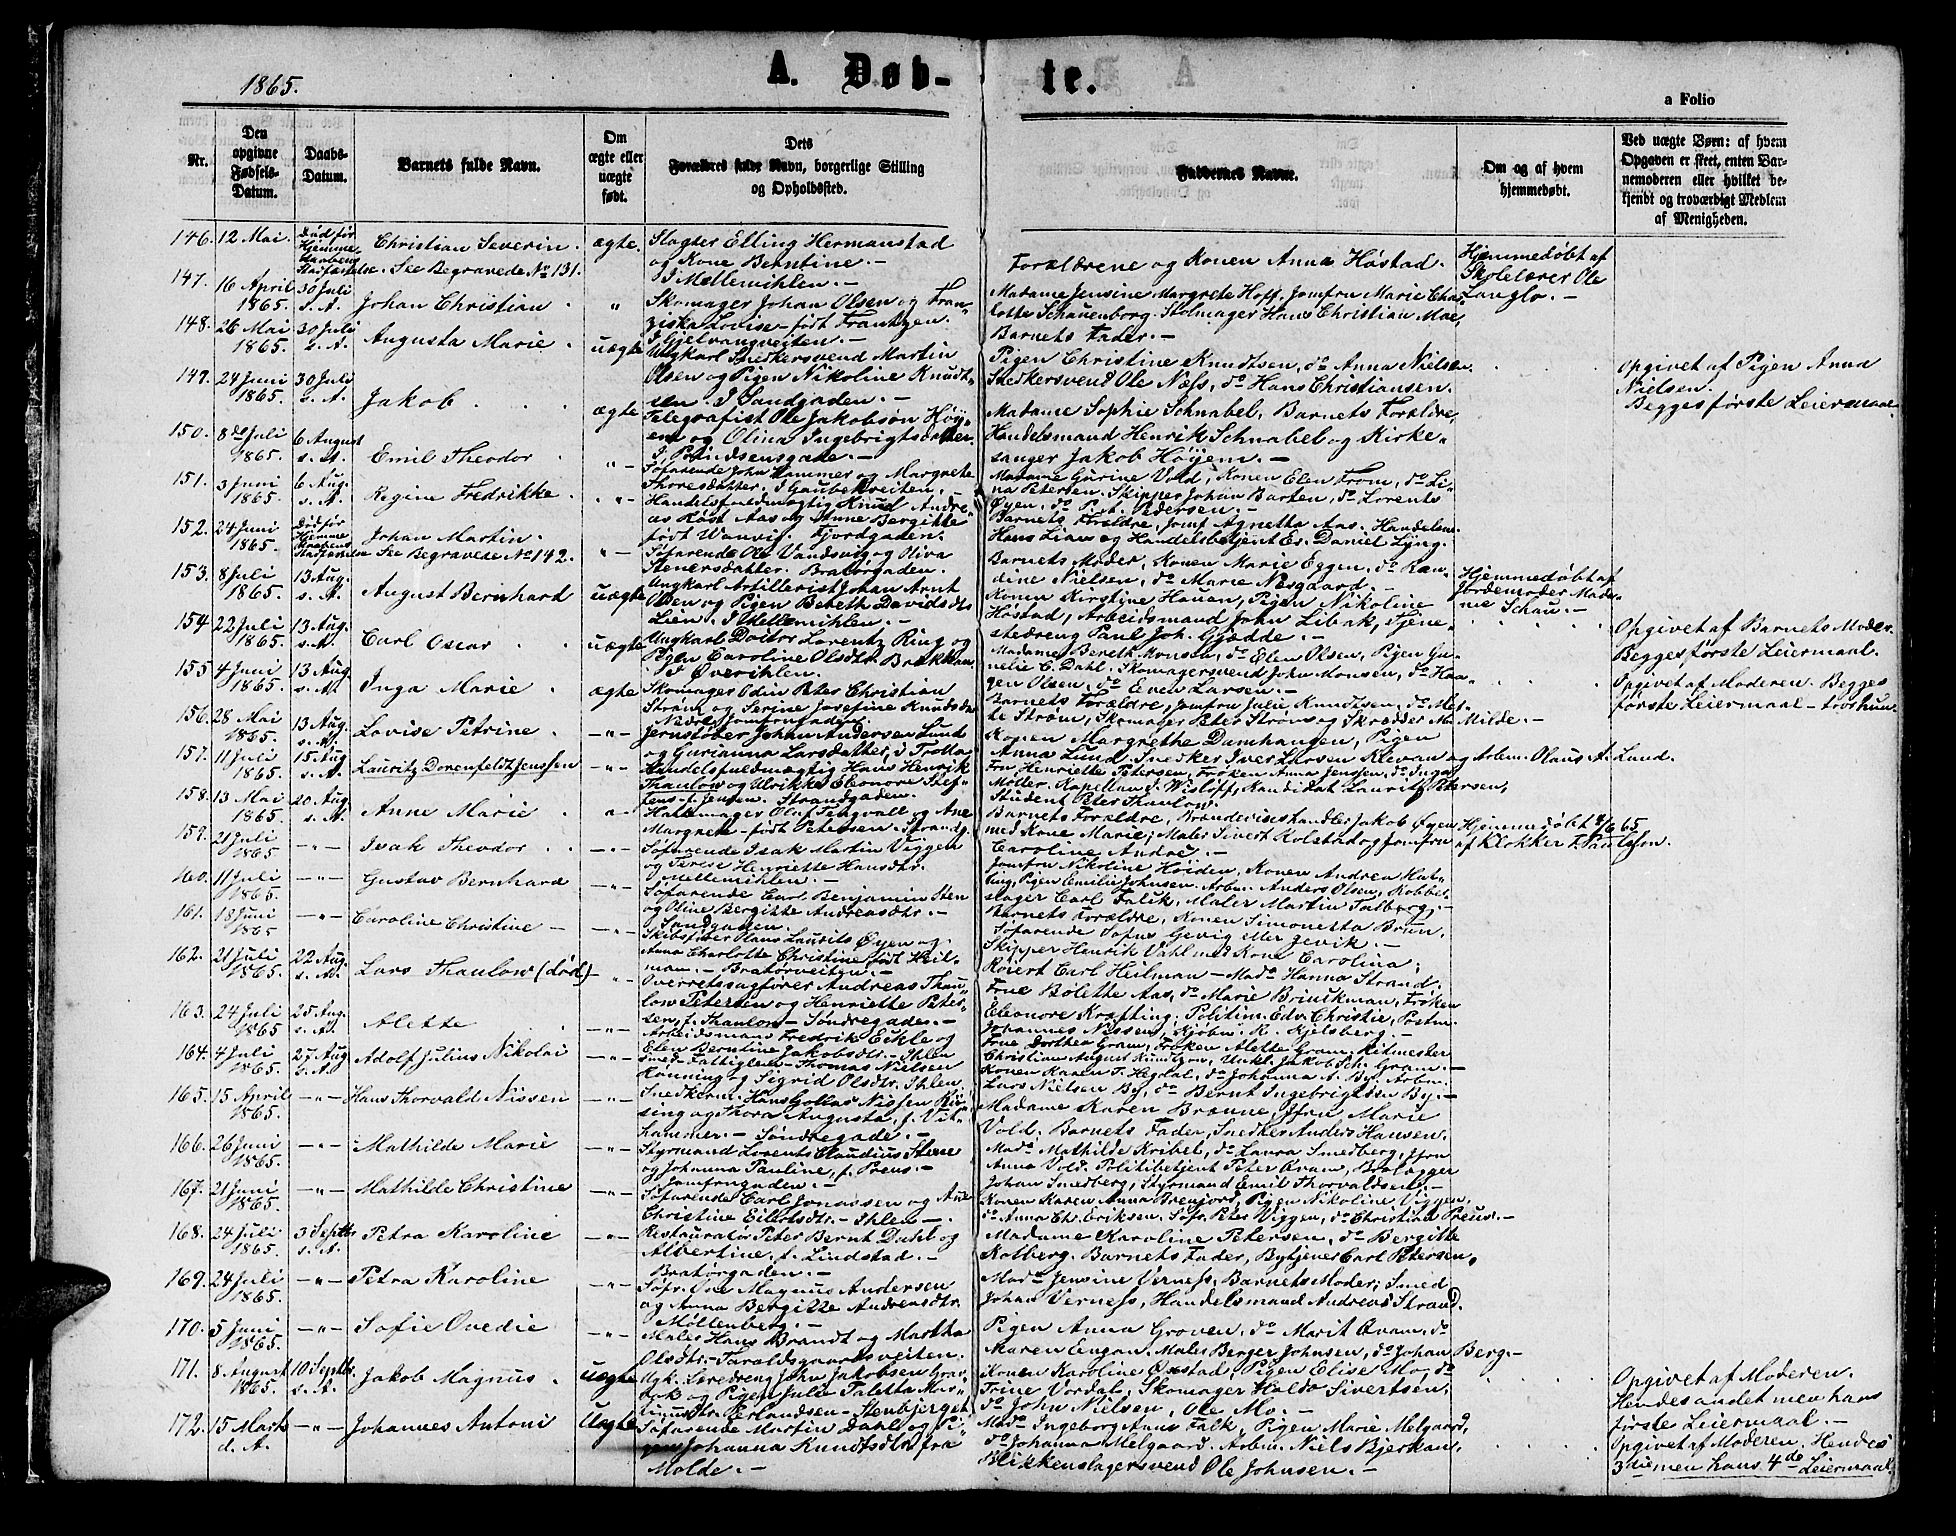 1865.
A. Døb-
te.
a Folio
Nr.
Den opgivne Fødsels-Datum.
Daabs-Datum.
Barnets fulde Navn.
Om ægte eller uægte født.
Dets
Forældres fulde Navn, borgerlige Stilling
og Opholdssted.
Faddernes Navne.
Om og af hvem
hjemmedøbt.
Ved uægte Børn: af hvem
Opgaven er skeet, enten Bar-
nemoderen eller hvilket be-
kjendt og troværdigt Medlem
af Menigheden.
146. 12 Mai. Død før Hjemme Daabens Stadfæstelse. Christian Severin. ægte.
See Begravede No 131.
Slagter Elling Hermanstad
og Kone Berntine.-
I Mellemihlen.-
Forældrene og Konen Anna Høstad.
Hjemmedøbt af
Skolelærer Ole
Langlo.-
147. 16 April 1865. 30 Juli s. A. Johan Christian "
Skomager Johan Olsen og Fran-
ziska Lovise født Frantzen.
I Gjelvangveiten.-
Madame Jensine Margrete Hoff. Jomfru Marie Char-
lotte Schauenborg. Stolmager Hans Christian Moe,
Barnets Fader.-
148. 26 Mai 1865. 30 Juli s. A. Augusta Marie uægte
Ungkarl Snedkersvend Martin
Olsen og Pigen Nikoline Knudt-
sen. I Sandgaden.-
Pigen Christine Knudtsen, do Anna Nielsen
Snedkersvend Ole Næss, do Hans Christiansen.
Opgivet af Pigen Anna
Nielsen.
Begges første Leiermaal
149. 24 Juni 1865. 30 Juli s. A. Jakob ægte
Telegrafist Ole Jakobson Høy-
em og Olina Ingebrigtsdatter.
Madame Sophie Schnabel, Barnets Forældre,
Handelsmand Henrik Schnabel og Kirke-
sanger Jakob Höyem.-
150. 8de Juli 1865. 6 August s. A. Emil Theodor - " -
Søfarende John Hammer og Margrete
Thoresdatter. I Gaubekveiten.-
Madame Gurine Vold, Konen Elen From, do Li-
na Petersen. Skipper Johan Barten, do Lorents
Øyen, do P. A. Pedersen.-
151. 3 Juni 1865. 6 Aug. s. A. Regine Fredrikke - " -
Handelsfuldmægtig Knud Andre-
as Røst Aas og Anne Bergitte
født Wanvig. Fjordgaden.
Barnets Forældre, Jomf. Agnetta Aas. Handelsm.
Hans Lian og Handelsbetjent Es. Daniel Lyng.
152. 24 Juni 1865. Død før Hjemme Daabens Stadfæstelse Johan Martin. - " -
See Begravede No 142.
Søfarende Ole Vandsvig og Oliva
Stenersdatter. Bratørgaden.
Barnets Moder, Konen Marie Eggen, do Ran-
dine Nielsen, do Marie Nesgaard.
Hjemmedøbt af
Jordemoder Made-
nie Schau.-
153. 8 Juli 1865. 13 Aug. s. A. August Bernhard uægte
Ungkarl Artillerist Johan Arnt
Olsen og Pigen Bereth Davidsdtr
Lien. I Mellemihlen.-
Konen Kirstine Hauen, Pigen Nikoline
Høstad, Arbeidsmand John Libak, Tjene-
stedreng Paul Joh. Gjædde.-
Opgivet af Barnets Moder.
Begges første Leiermaal.
154 22 Juli 1865. 13 Aug. s. A. Carl Oscar uægte
Ungkarl Doitor Lorentz Ring og
Pigen Caroline Olsdtr. Brækkan
I Øverihlen.
Madame Bereth Monsen, do Elen Olsen, Pigen Gu-
nelie C. Dahl. Skomagersvend John Monsen, do Haa-
gen Olsen, do Even Larsen.-
Opgivet af Moderen. Begges
første Leiermaal - troshun
155 4 Juni 1865. 13 Aug. s. A. Inga Marie ægte
Skomager Odin Peter Christian
Strøm og Serine Josefine Knudsdtr
Nedre Jomfrugaden.
Barnets Forældre, Jomfru Julie Knudtsen, do Met-
te Strøm, Skomager Peter Strøm og Skrædder M. Milde.-
156. 28 Mai 1865. 13 Aug. s. A. Lovise Petrine - " -
Jernstøber Johan Andersen Lund
og Gurianna Larsdatter, i Trolla
Konen Margrethe Damhaugen, Pigen
Anna Lund. Snedker Iver Larsen Klevan og Arbm. Olaus A. Lund.
157. 11 Juli 1865. 15 Aug. s. A. Lauritz Dorenfeldt Jenssen - " -
Handelsfuldmægtig Hans Henrik
Thaulow og Ulrikke Eleonore Stef-
fens f. Jensen. Strandgaden.
Fru Henriette Petersen, Frøken Anna Jenssen, do Inga
Møller. Kapelland. Wisløff, Kandidat Lauritz Petersen,
Student Peter Thaulow.
158. 13 Mai 1865. 20 Aug. s. A. Anne Marie - " -
Hattemager Oluf Tengvall og Ane
Margrete født Petersen. Strandg.
Barnets Forældre, Brændeviinshandler Jakob Øyen
med Kone Marie, Maler Sivert Rolstad og Jomfru
Caroline André.-
Hjemmedøbt 4/6 65
af Klokker F. Paulsen.
159. 21 Juli 1865 - " - Isak Theodor - " -
Søfarende Isak Martin Viggen
og Terese Henriette Hansdtr.
Mellemihlen.-
Jomfru Nikoline Høiden, Konen Andrea Hal-
ling, Pigen Emilie Johnsen. Arbm. Anders Olsen, Kobber-
slager Carl Falck, Maler Martin Talberg;-
160. 11 Juli 1865. - " - Gustav Bernhard - " -
Søfarende Carl Benjamin Sten
og Oline Bergitte Andreasdtr.-
Sandgaden.
Barnets Forældre, Konen Simonetta Brun,
Søfarende Sofus Gevig eller Jevik.-
161. 18 Juni 1865 - " - Caroline Christine - - " -
Skibsfører Hans Laurits Øyen og
Anna Charlotte Christine født Heil-
man.- Bratørveiten.-
Skipper Henrik Vahl med Kone Carolina;
Roiert Carl Heilman - Mad. Hanna Strand.
162. 21 Juli 1865. 22 Aug. s. A. Lars Thaulow (død) - " -
Overretssagfører Andreas Thau-
low Petersen og Henriette Peter-
sen, f. Thaulow - Søndregade.-
Frue Bolette Aas, do Marie Brinckman, Frøken
Eleonore Krafting; Politim. Edv. Christie, Postm.
Johannes Nissen, Kjøbm. K. Kjelsberg.-
163. 24 Juli 1865 25 Aug. s. A. Alette - " -
Arbeidsmand Fredrik Eckle og
Elen Berntine Jakobsdtr.- Ihlen
Frue Dorthea Gram, Frøken Alette Gram, Ritmester
Christian August Rundgren, Unkl. Jakob Sch. Gram.-
164. 4 Juli 1865. 27 Aug s. A. Adolf Julius Nikolai - " -
Smed - Fattiglem - Thomas Nielsen
Rønning og Sigrid Olsdtr. Ihlen
Konen Karen T. Hegdal, do Johanna A. By, Arbm.
Lars Nielsen By, do Bernt Ingebrigtsen By.-
165. 15 April 1865. - " - Hans Thorvald Nissen - " -
Snedkerm. Hans Gollas Nissen Rii-
sing og Thora Augusta, f. Vit-
hammer.- Søndregade.-
Madame Karen Brønne, Jfru Marie
Vold. Barnets Fader, Snedker Anders Hansen.
166. 26 Juni 1865. - " - Mathilde Marie - " -
Styrmand Lorents Claudius Stene
og Johanna Pauline, f. Preus.-
Jomfrugaden.-
Mad. Mathilde Kribel, do Laura Smedberg, Jfru
Anna Vold. Politibetjent Peter Qvam, Brolægger
Johan Smedberg, Styrmand Emil Thorvaldsen.-
167. 21 Juni 1865. - " - Mathilde Christine - " -
Søfarende Carl Jonassen og Ane
Christine Eilertsdtr.- Ihlen.-
Konen Karen Anna Brenjord, Pigen Nikoline Viggen,
do Anna Chr. Eriksen. Søfr. Peter Viggen, do Christian Preus.-
168. 24 Juli 1865. 3 Septbr s. A. Petra Karoline - " -
Restauratør Peter Bernt Dahl og
Albertine, f. Lindstad.-
Bratørgaden.-
Madame Karoline Petersen, do Bergitte
Kolberg. Barnets Fader, Bytjener Carl Petersen,
169. 24 Juli 1865. - " - Petra Karoline - " -
Søfr. Ove Magnus Andersen
og Anna Bergitte Andreasdtr.
Møllenberg.-
Mad. Jensine Verness, Barnets Moder; Smed
Johan Verness, Handelsmand Andreas Strand.
170. 5 Juni 1865. - " - Sofie Ovedie - " -
Maler Hans Brandt og Martha
Olsdtr.- Taraldsgaardsveiten.
Pigen Anna Groven, do Marit Qvam, do
Maren Engan. Maler Berger Johnsen, do Johan Berg.-
171. 8 August 1865. 10 Septbr. s. A. Jakob Magnus uægte
Ugk. Liredreng John Jakobsen Grav-
bok og Pigen Julie Taletta Mar-
tinusdtr. Perlandsen - Stenbjerget
Konen Karoline Oxstad, Pigen Elise Mo, do
Trine Vordal, Skomager Haldo Sivertsen,
do John Nielsen, Ole Mo.-
Opgivet af Moderen.
Hendes andet men hans
første Leiermaal.-
172. 15 Marts d. A. - " - Johannes Antoni Uægte
Søfarende Martin Dahl og Pi-
gen Johanna Knudtsdtr fra
Molde.-
Mad. Ingeborg Anna Falk, Pigen Marie Melgaard,
do Johanna Melgaard. Arbm. Niels Bjerkan,
Blikkenslagersvend Ole Johnsen.-
Opgivet af Moderen. Hendes
3die men hans 4de Leiermaal.